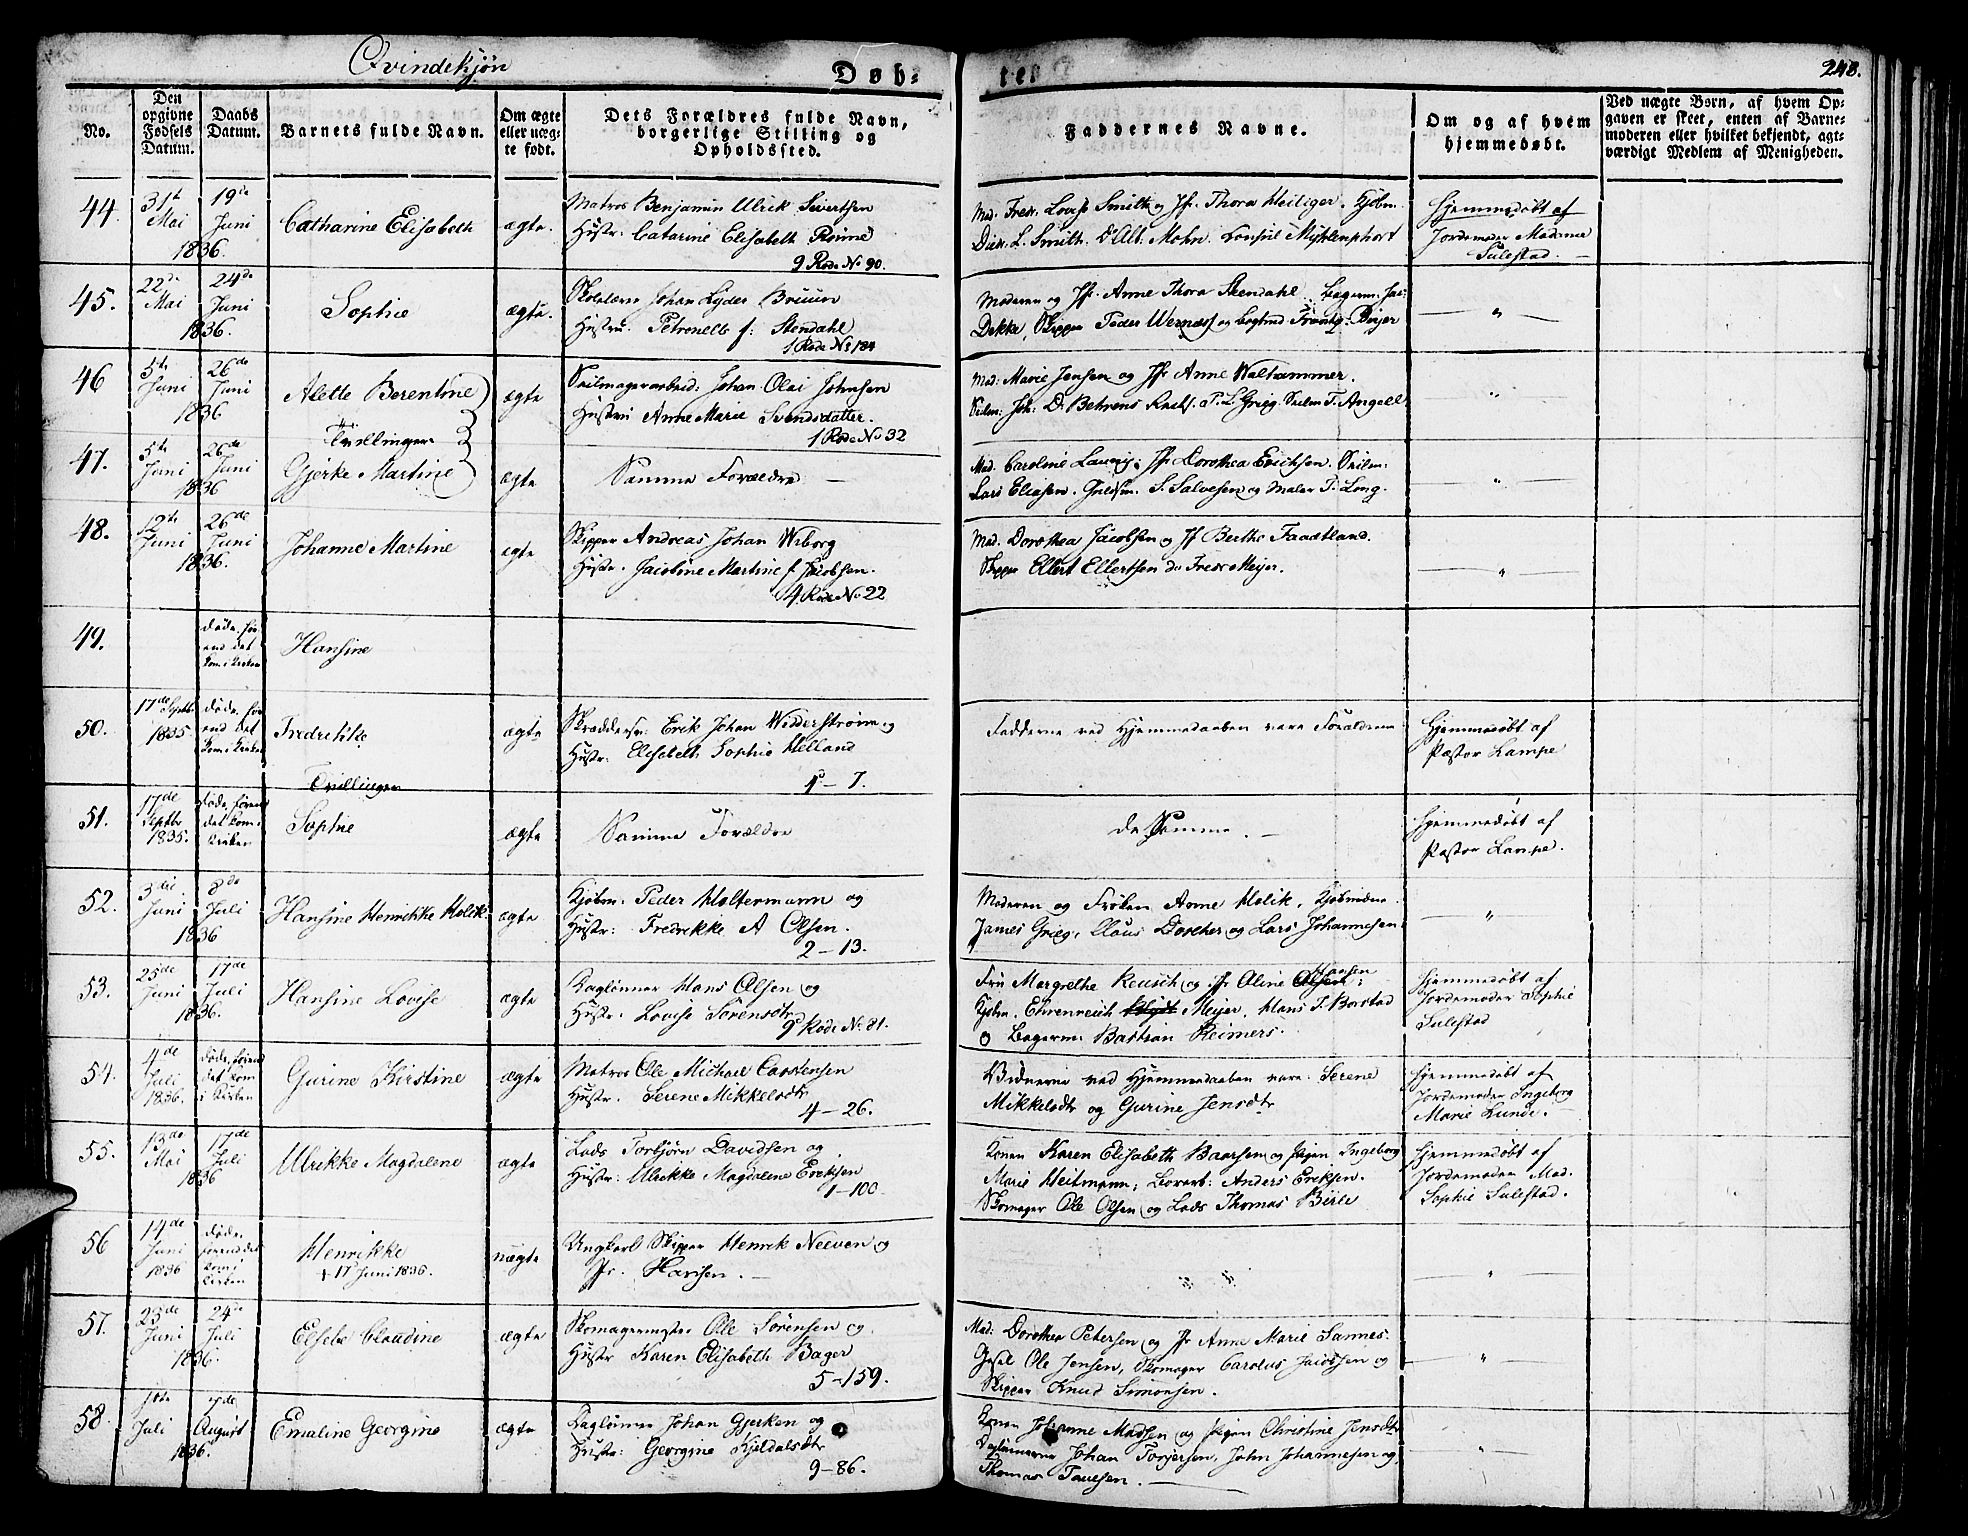 Qvindekjøn
Døb-
tes
248.
No.
Den opgivne Fødsels Datum.
Daabs Datum.
Barnets fulde Navn.
Om ægte eller uæg- te født.
Dets Forældres fulde Navn, borgerlige Stilling og Opholdssted.
Faddernes Navne.
Om og af hvem hjemmedøbt.
Ved uægte Børn, af hvem Op- gaven er skeet, enten af Barne- moderen eller hvilket bekjendt, agt- værdigt Medlem af Menigheden.
44. 31te Mai 19de Juni 1836. Catharine Elisabeth ægte.
Matros Benjamin Ulrik Sivertsen
Hustr: Catarine Elisabeth
9 Rode No 90.
Mad. Fredr. Lovise Smith og Jfr. Thora Heiliger. Kjøbm.
L. Smith. D. Alb. Mohn. Konsul
Hjemmedøbt af
Jordemoder Madame
Sulestad.
45. 22de Mai 24de Juni 1836. Sophie ægte.
Johan Lyder Bruun
Hustru: Petronelle f: Stendahl
1 Rode No 184
Moderen og Jfr. Anne Thora Stendahl.
Dekke, Skipper Peder Wernøes og
— " —
46 5te Juni 26de Juni 1836 Alette Berentine ægte
Seilmagerarbeid: Johan Olai Johnsen
Hustru Anne Marie Svendsdatter.
1 Rode No 32
Mad: Marie Jensen og Jfr Anne Walhammer.
Seilm: Joh: D. Behrens T. L. Grieg. Seilm T. Angell
"
Tvillinger
47. 5te Juni 26de Juni 1836 Gjerke Martine ægte
Samme Forældre —
Mad. Caroline Jfr Dorothea Erichsen. Seilm.
Lars Eliasen. Guldsm. S. Salvesen og Maler T. Long.
— " —
48. 12te Juni 26de Juni 1836. Johanne Martine ægte
Skipper Andreas Johan Wiborg
Hustr. Jacobine Martine f. Jacobsen.
4 Rode No 22
Mad. Dorothea Jacobsen og Jf Berthe Faadtland.
Skipper Ellert Ellertsen do Fredr Meijer.
— " —
49. døde for- end det kom i Kirken Hansine
50. 17de Septbr 1835 døde for end det kom i Kirken Fredrikke ægte
Skræddersv: Erik Johan Widderstrøm og
Hustr: Elisabeth Sophie Helland
— 7.
Fadderne ved Hjemmedaaben vare Forældrene
Hjemmedøbt af
Pastor Lampe
Tvillinger
51. 17de Septbr 1835. døde, førend det kom i Kirken Sophie ægte
Samme Forældre
de Samme. —
Hjemmedøbt af
Pastor Lampe.
52. 3die Juni 8de Juli 1836 Hansine Henrikke Holik ægte
Kjøbm: Peder Holtermann og
Hustr: Fredrikke A Olsen.
2 — 13.
Moderen og Frøken Anne Holik, Kjøbmændne
James Grieg, Claus Dorcher og Lars Johannesen
— " —
53. 25de Juni 17de Juli 1836. Hansine Lovise ægte
Daglønner Hans Olsen og
Hustr: Lovise Sørensdtr
9d Rode No 81.
Fru Margrethe Reusch og Jfr Aline Hansen
Kjøbm. Ehrenreich Meijer, Hans J. Borstad
o Bagerm: Bastian Reimers.
Hjemmedøbt af
Jordemoder Sophie
Sulestad
54. 4de Juli 1836. døde, førend det kom i Kirken Gurine Kirstine ægte
Matros Ole Michael Carstensen
Hustr. Serene Mikkelsdtr
4 — 26.
Vidnerne ved Hjemmedaaben vare: Serene
Mikkelsdtr og Gurine Jensdtr
Hjemmedøbt af
Jordemoder Ingeborg
Marie Lunde. —
55. 13de Mai 17de Juli 1836 Ulrikke Magdalene ægte
Lods Torbjørn Davidsen og
Hustr: Ulrikke Magdalene Eriksen
1 — 100.
Konen Karen Elisabeth Baarsen og Pigen Ingeborg
Marie Heitmann; Anders Eriksen.
Skomager Ole Olsen og Lods Thomas Birle
Hjemmedøbt af
Jordemoder Mad.
Sophie Sulestad.
56 14de Juni 1836 døde, førend det kom i Kirken Henrikke
+ 17 Juni 1836. uægte
Ungkarl Skipper Henrik Neeven og
Pr. Hansen. —
" "
— " —
57. 23de Juni 24de Juli 1836. Elsebe Claudine ægte
Skomagermester Ole Sørensen og
Hustr Karen Elisabeth Bager
5 — 159.
Mad: Dorothea Petersen og Jfr Anne Marie Sannes.
Gesel Ole Jensen, Skomager Carolus Jacobsen og
Skipper Knud Simonsen.
— " —
58. Juli 7de August 1836. Emaline Georgine ægte
Daglønner Johan Gjerken og
Hustr: Georgine Kjeldalsdtr
9 — 86.
Konen Johanne Madsen og Pigen Christine Jensdtr
Daglønnerne Johan Torjersen, John Johannesen og
Thomas Tavesen. —
— " —